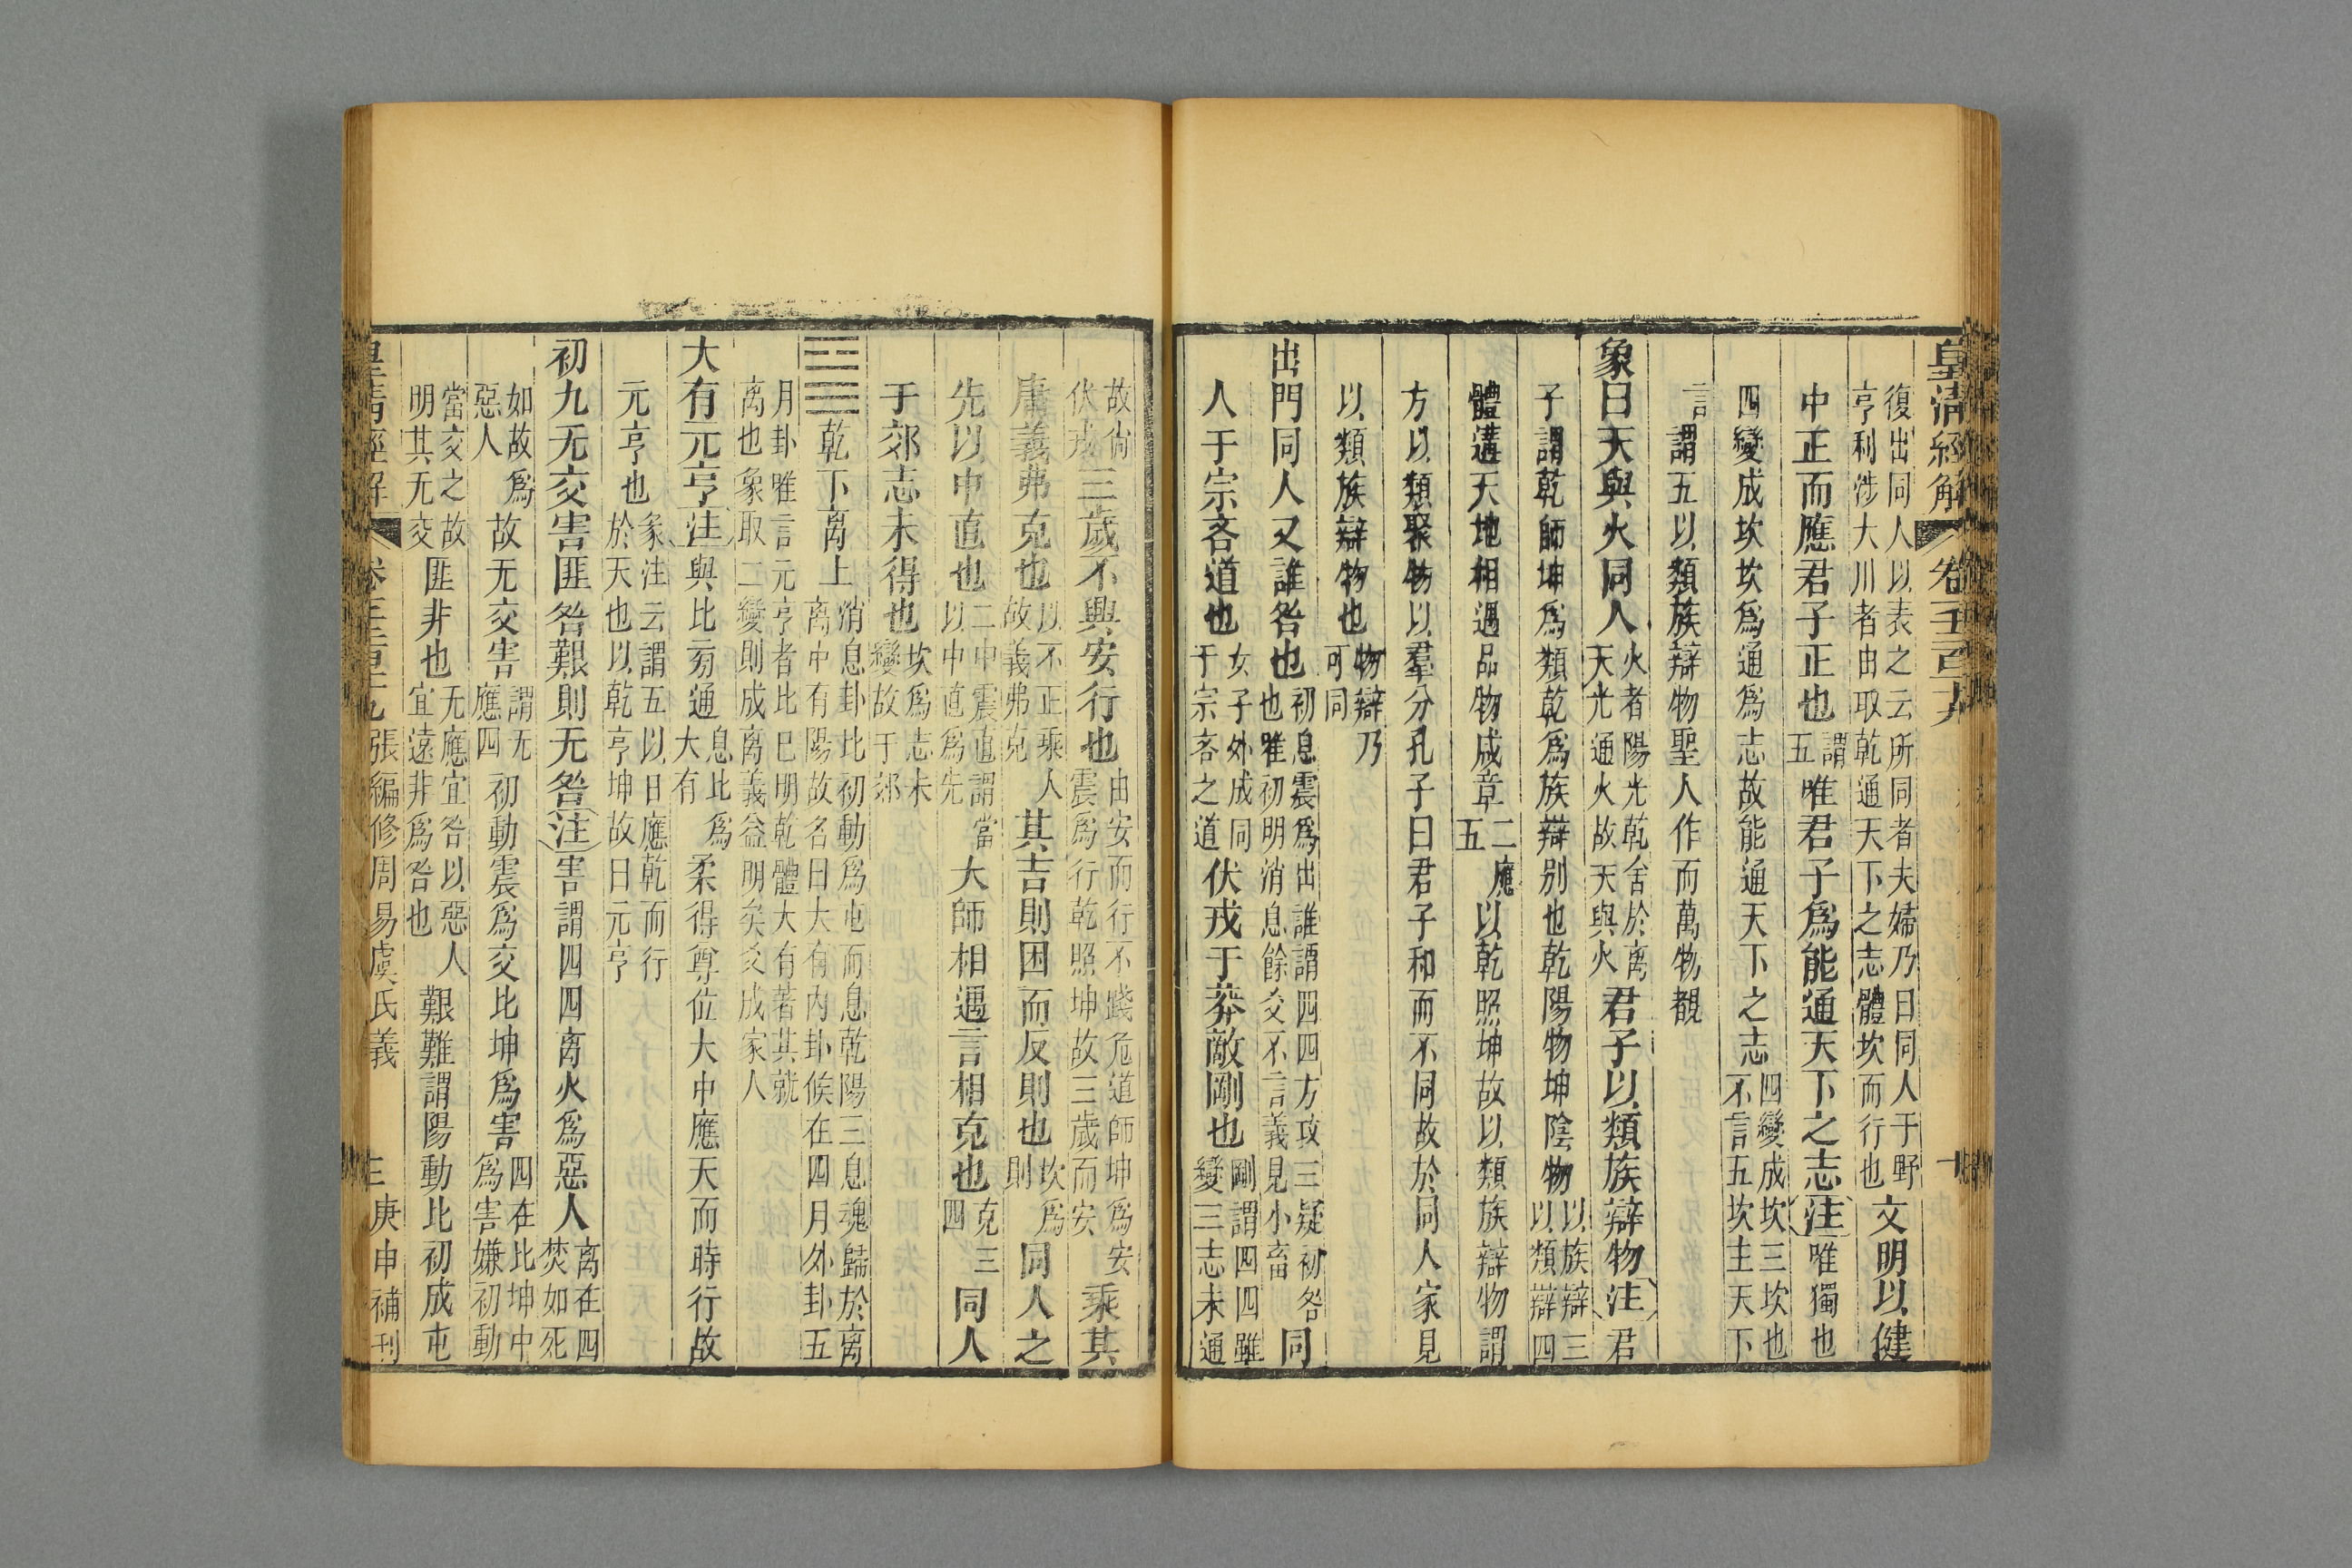 皇清經解 卷
復出同人以表之云所同者夫婦乃曰同人于野
亨利涉大川者由取乾通天下之志體坎而行也
文明以健
中正而應君子正也
謂
五
唯君子爲能通天下之志
注
唯獨也
四變成坎坎爲通爲志故能通天下之志
四變成坎三坎也
不言五坎主天下
言謂五以類族辯物聖人作而萬物覩
象曰天與火同人
火者陽光乾舍於离
天光通火故天與火
君子以類族辯物
注
君
子謂乾師坤爲類乾爲族辯别也乾陽物坤陰物
以族辯三
以類辯四
體遘天地相遇品物咸章
二應
五
以乾照坤故以類族辯物謂
方以類聚物以羣分孔子曰君子和而不同故於同人家見
以類族辯物也
物辯乃
可同
出門同人又誰咎也
初息震爲出誰謂四四方攻三疑初咎
也唯初明消息餘爻不言義見小畜
同
人于宗吝道也
女子外成同
于宗吝之道
伏戎于莽敵剛也
剛謂四四雖
變三志未通
故尚
伏戎
三歲不興安行也
由安而行不踐危道師坤爲安
震爲行乾照坤故三歲而安
乘其
庸義弗克也
以不正乘人
故義弗克
其吉則困而反則也
坎爲
則
同人之
先以中直也
二中震直謂當
以中道爲先
大師相遇言相克也
克三
四
同人
于郊志未得也
坎爲志未
變故于郊
䷍乾下离上
消息卦比初動爲屯而息乾陽三息魂歸於离
离中有陽故名曰大有内卦候在四月外卦五
月卦唯言元亨者比巳明乾體大有著其就
离也象取二變則成离義益明矣爻成家人
大有元亨
注
與比㫄通
息比爲
大有
柔得尊位大中應天而時行故
元亨也
象注云謂五以日應乾而行
於天也以乾亨坤故曰元亨
初九无交害匪咎艱則无咎
注
害謂四四离火爲惡人
离在四
焚如死
如故爲
惡人
故无交害
謂无
應四
初動震爲交比坤爲害
四在比坤中
爲害嫌初動
當交之故
明其无交
匪非也
无應宜咎以惡人
宜遠非爲咎也
艱難謂陽動比初成屯
皇清經解 張編修周易虞氏義 三 庚申補刊